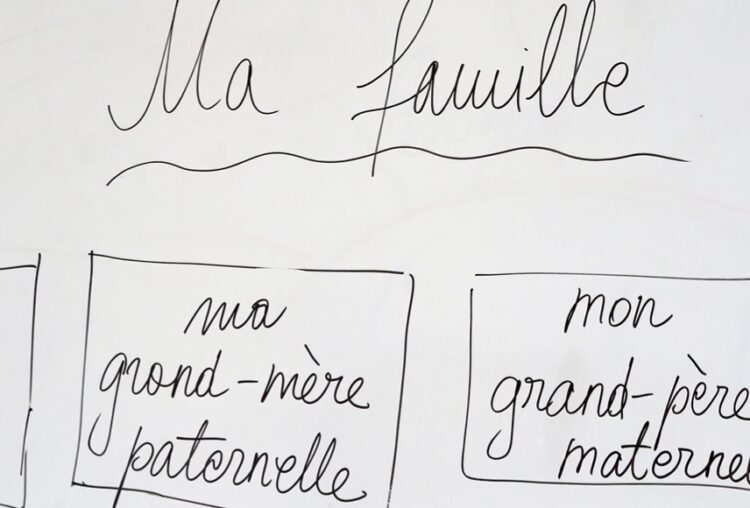 Ma famille
ma
grand-mère
paternelle
mon
grand-père